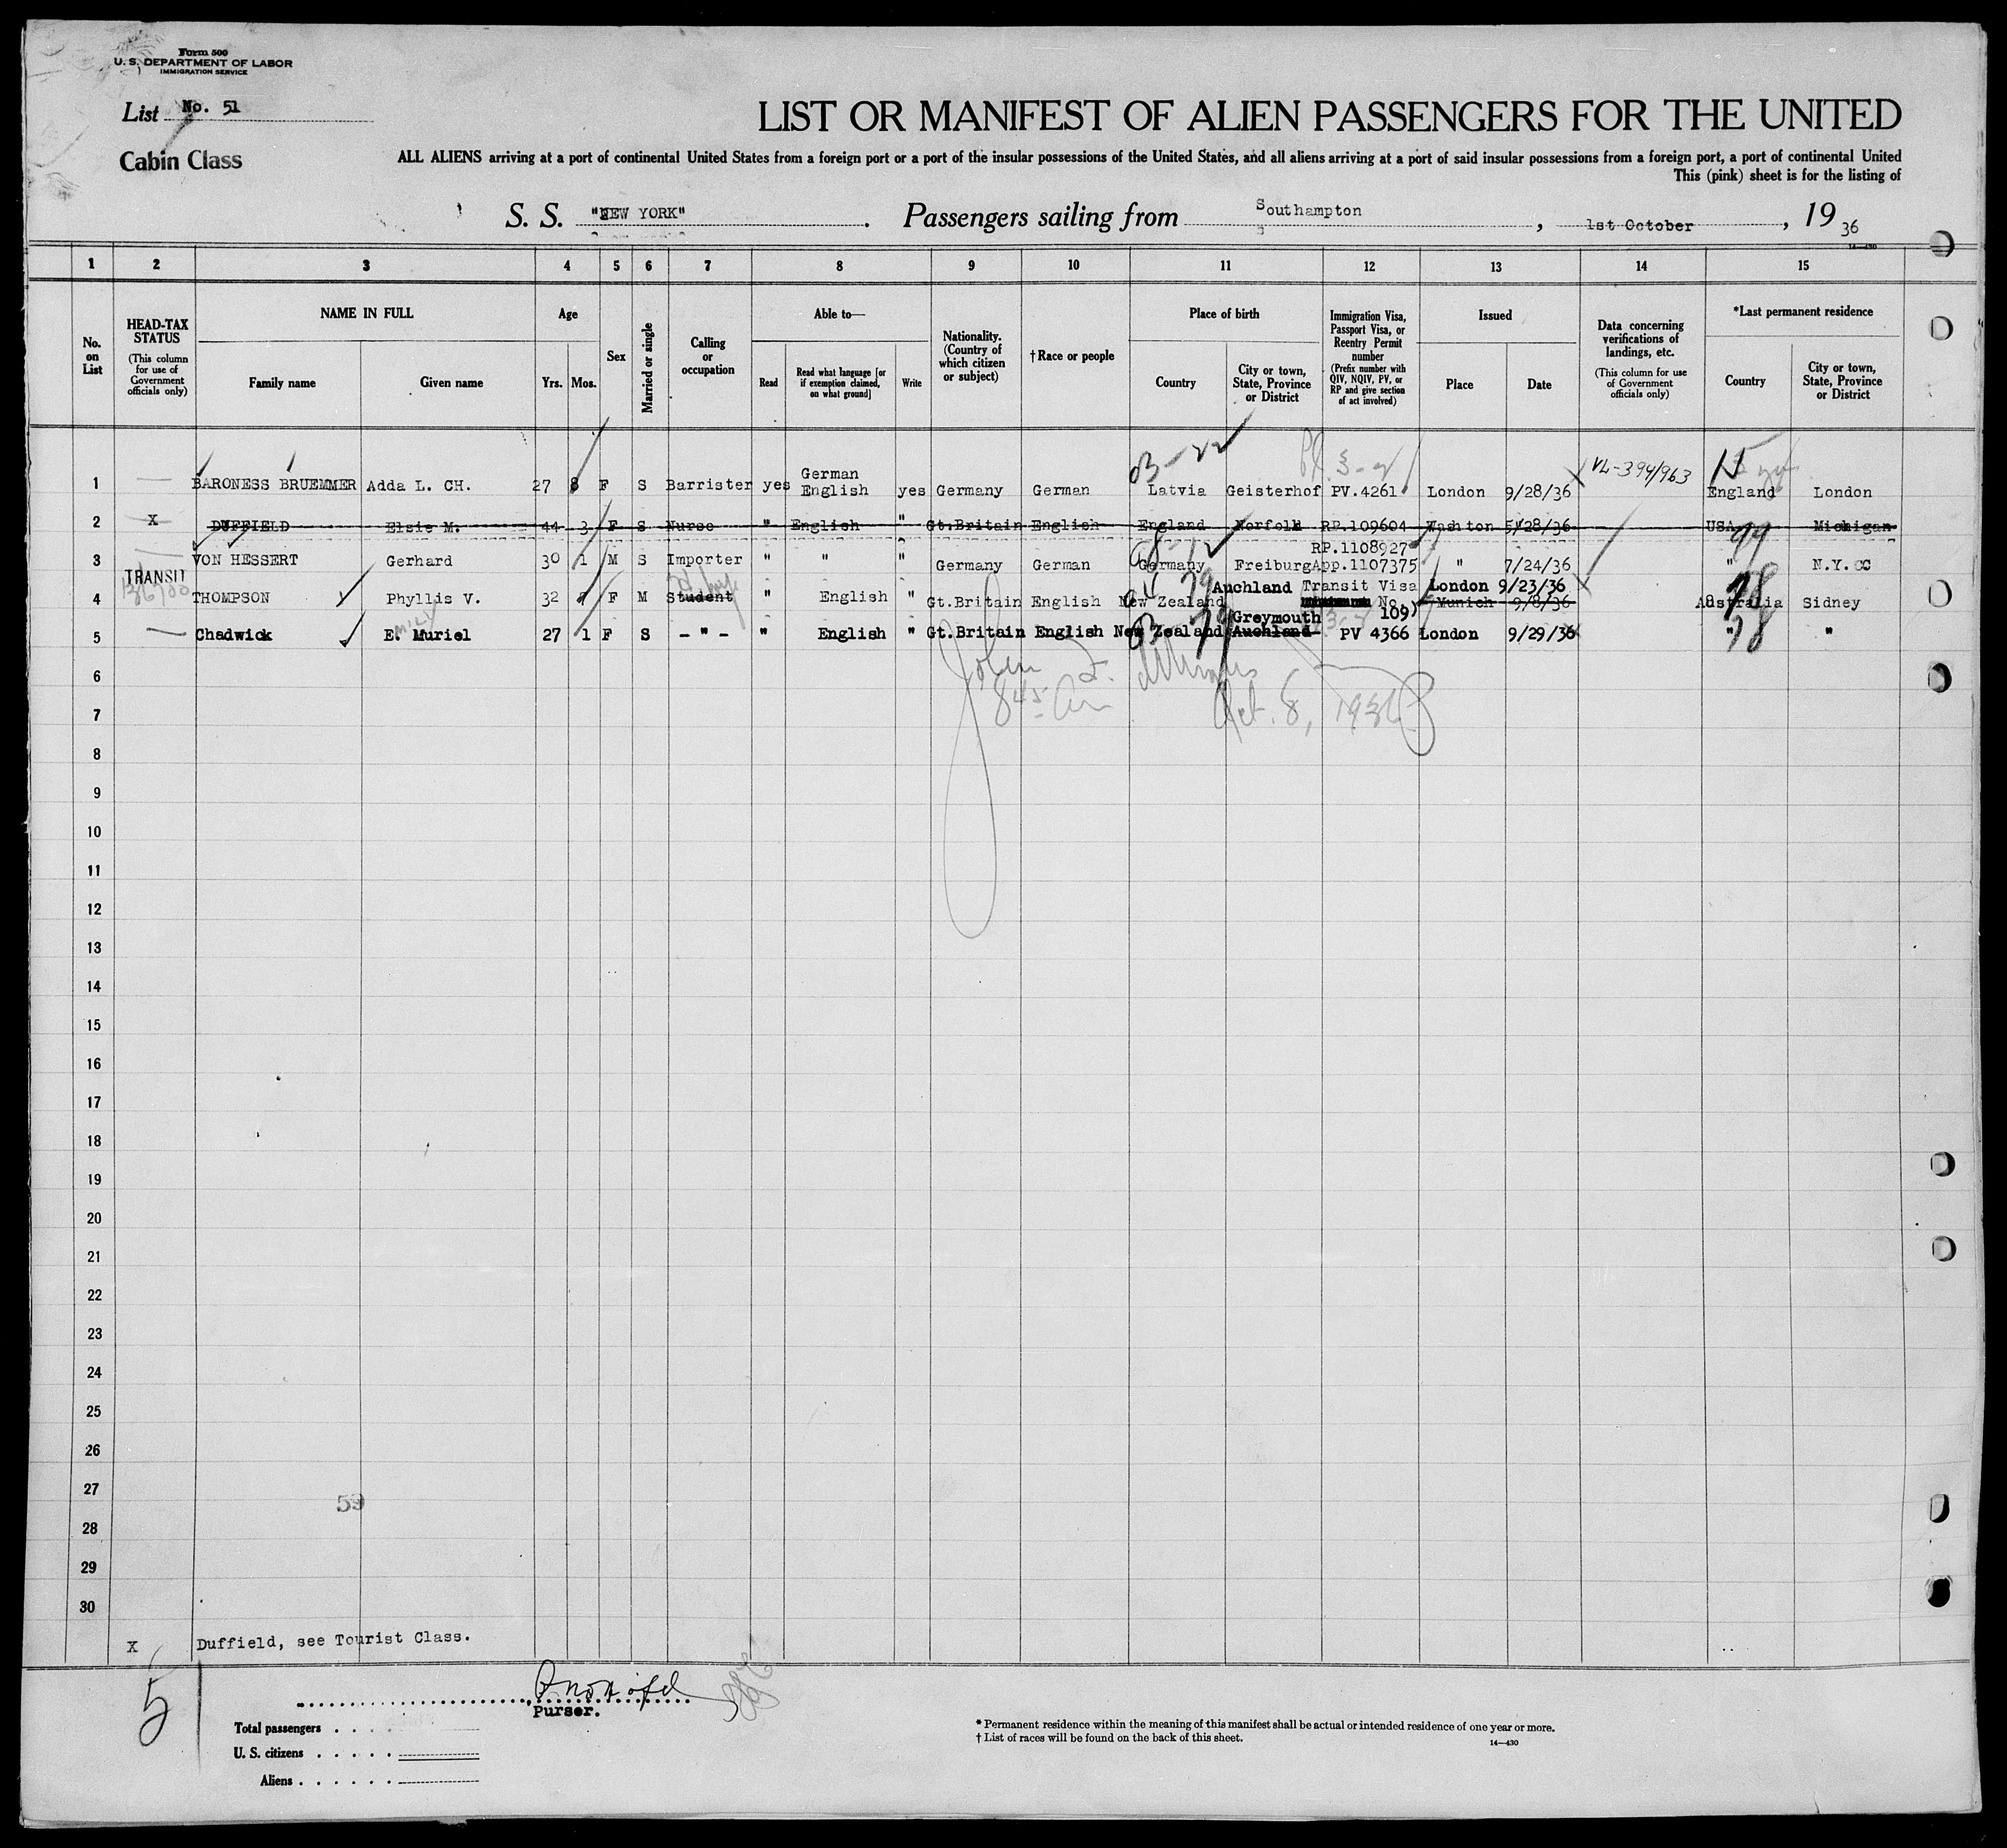 Form 500
U. S. DEPARTMENT OF LABOR
IMMIGRATION SERVICE
List No. 51
Cabin Class
LIST OR MANIFEST OF ALIEN PASSENGERS FOR THE UNITED
ALL ALIENS arriving at a port of continental United States from a foreign port or a port of the insular possessions of the United States, and all aliens arriving at a port of said insular possessions from a foreign port, a port of continental United
This (pink) sheet is for the listing of
S. S. "NEW YORK" . Passengers sailing from Southampton , 1st October , 19 36
14—430
1 2 3 4 5 6 7 8 9 10 11 12 13 14 15
No. on List
HEAD-TAX STATUS (This column for use of Government officials only)
NAME IN FULL Family name Given name
Age Yrs. Mos.
Sex
Married or single
Calling or occupation
Able to— Read Read what language [or if exemption claimed, on what ground] Write
Nationality. (Country of which citizen or subject)
†Race or people
Place of birth Country City or town, State, Province or District
Immigration Visa, Passport Visa, or Reentry Permit number (Prefix number with QIV, NQIV, PV, or RP and give section of act involved)
Issued Place Date
Data concerning verifications of landings, etc. (This column for use of Government officials only)
*Last permanent residence Country City or town, State, Province or District
03-22
VL-394/963
1 — BARONESS BRUEMMER Adda L. CH. 27 8 F S Barrister yes German English yes Germany German Latvia Geisterhof PV.4261 London 9/28/36 England London
2 X DUFFIELD Elsie M. 44 3 F S Nurse " English " Gt.Britain English England Norfolk RP.109604 Washton 5/28/36 USA Michigan
99
3 — VON HESSERT Gerhard 30 1 M S Importer " " " Germany German Germany Freiburg RP.1108927 App.1107375 " 7/24/36 " N.Y.CC
TRANSIT
4 THOMPSON Phyllis V. 32 F M Student " English " Gt.Britain English New Zealand Auchland Transit Visa No. 109) London 9/23/36 Munich 9/8/36 Australia Sidney
5 — Chadwick E. Muriel 27 1 F S - " - " English " Gt.Britain English New Zealand Greymouth Auchland PV 4366 London 9/29/36 " "
John
Oct. 8, 1936
6
7
8
9
10
11
12
13
14
15
16
17
18
19
20
21
22
23
24
25
26
27
59
28
29
30
X Duffield, see Tourist Class.
5
Purser.
Total passengers
U. S. citizens
Aliens
* Permanent residence within the meaning of this manifest shall be actual or intended residence of one year or more.
† List of races will be found on the back of this sheet.
14—430